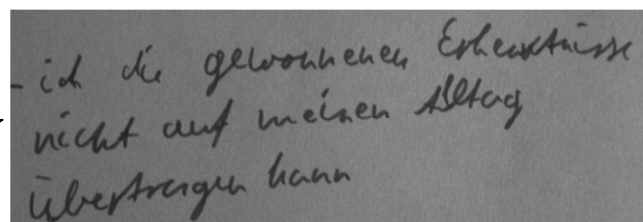 - ich die gewonnenen Erkenntnisse
nicht auf meinen Alltag
übertragen kann